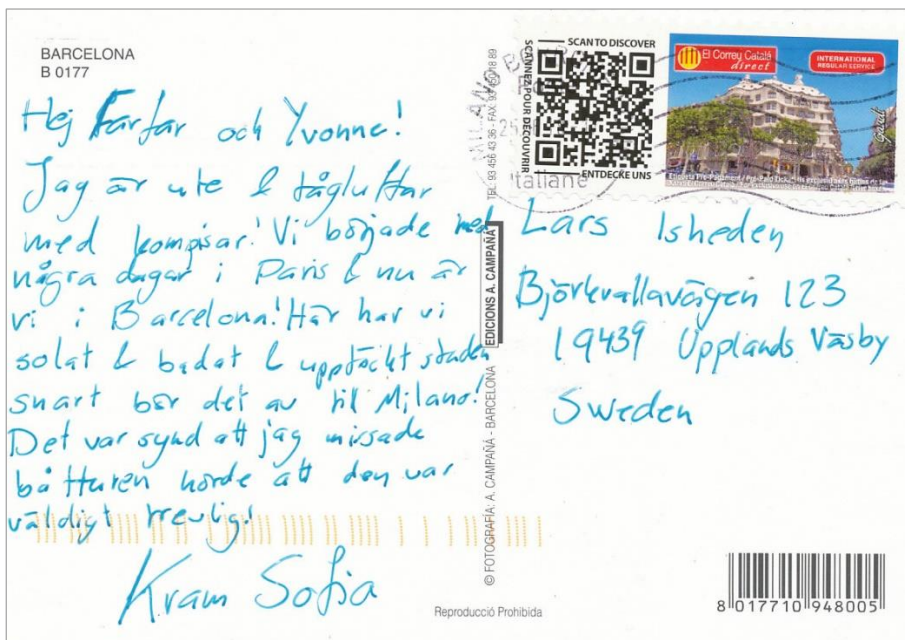 BARCELONA
B 0177
Hej Farfar och Yvonne!
Jag är ute & tågluffar
med kompisar! Vi började med
några dagar i Paris & nu är
vi i Barcelona! Här har vi
solat & badat & upptäckt staden
snart bär det av till Milano!
Det var synd att jag missade
båtturen hörde att den var
väldigt trevlig!
Kram Sofia
© FOTOGRAFIA: A. CAMPAÑÁ - BARCELONA
EDICIONS A. CAMPAÑÁ
TEL. 93 456 43 36 - FAX
SCAN TO DISCOVER
SCANNEZ POUR DÉCOUVRIR
ENTDECKE UNS
MILANO
Italiane
El Correy Català
direct
INTERNATIONAL
REGULAR SERVICE
Lars Isheden
Björkvallavägen 123
19439 Upplands Väsby
Sweden
Reproducció Prohibida
8 017710 948005